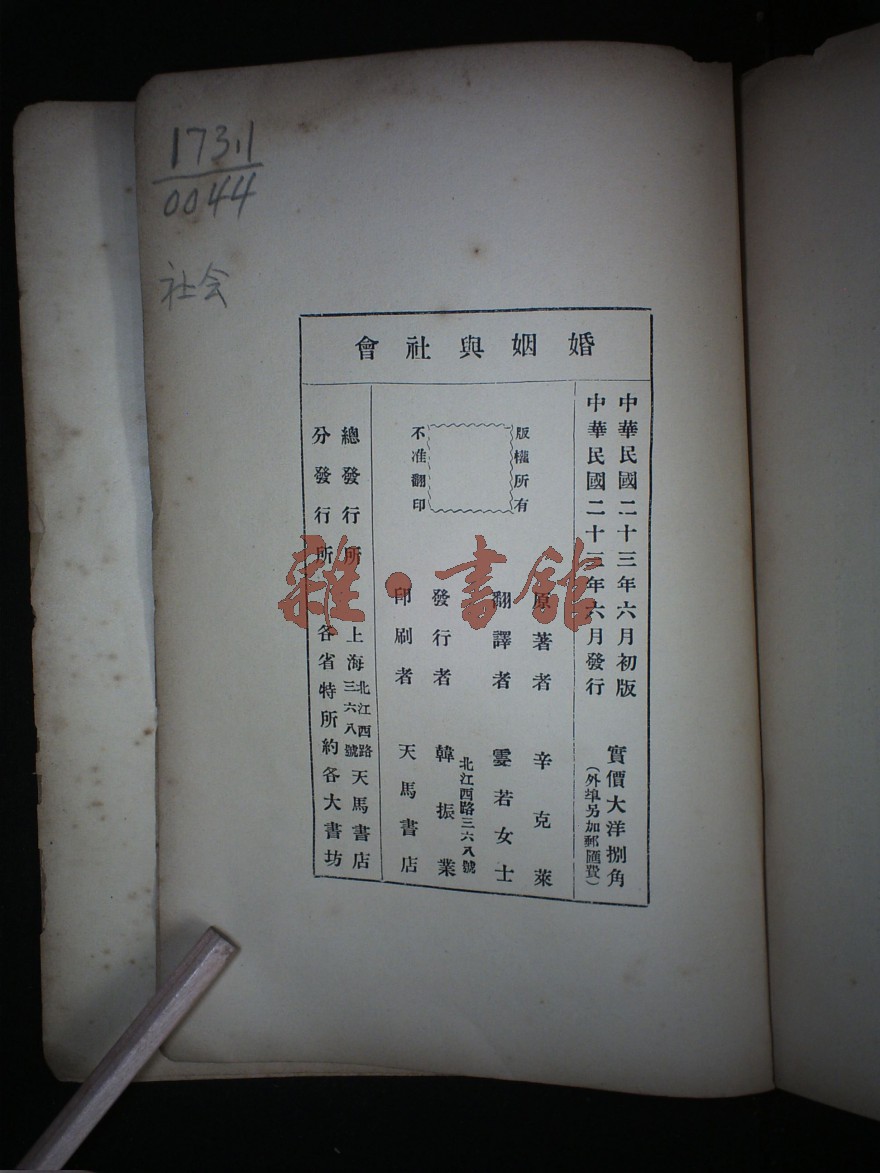 173.1
0044
社会
婚姻與社會
中華民國二十三年六月初版
中華民國二十三年六月發行
實價大洋捌角
(外埠另加郵匯費)
版權所有
不准翻印
原著者 辛克萊
翻譯者 雯若女士
發行者 韓振業
北江西路三六八號
印刷者 天馬書店
總發行所 上海北江西路三六八號天馬書店
分發行所 各省特所約各大書坊
雜·書館